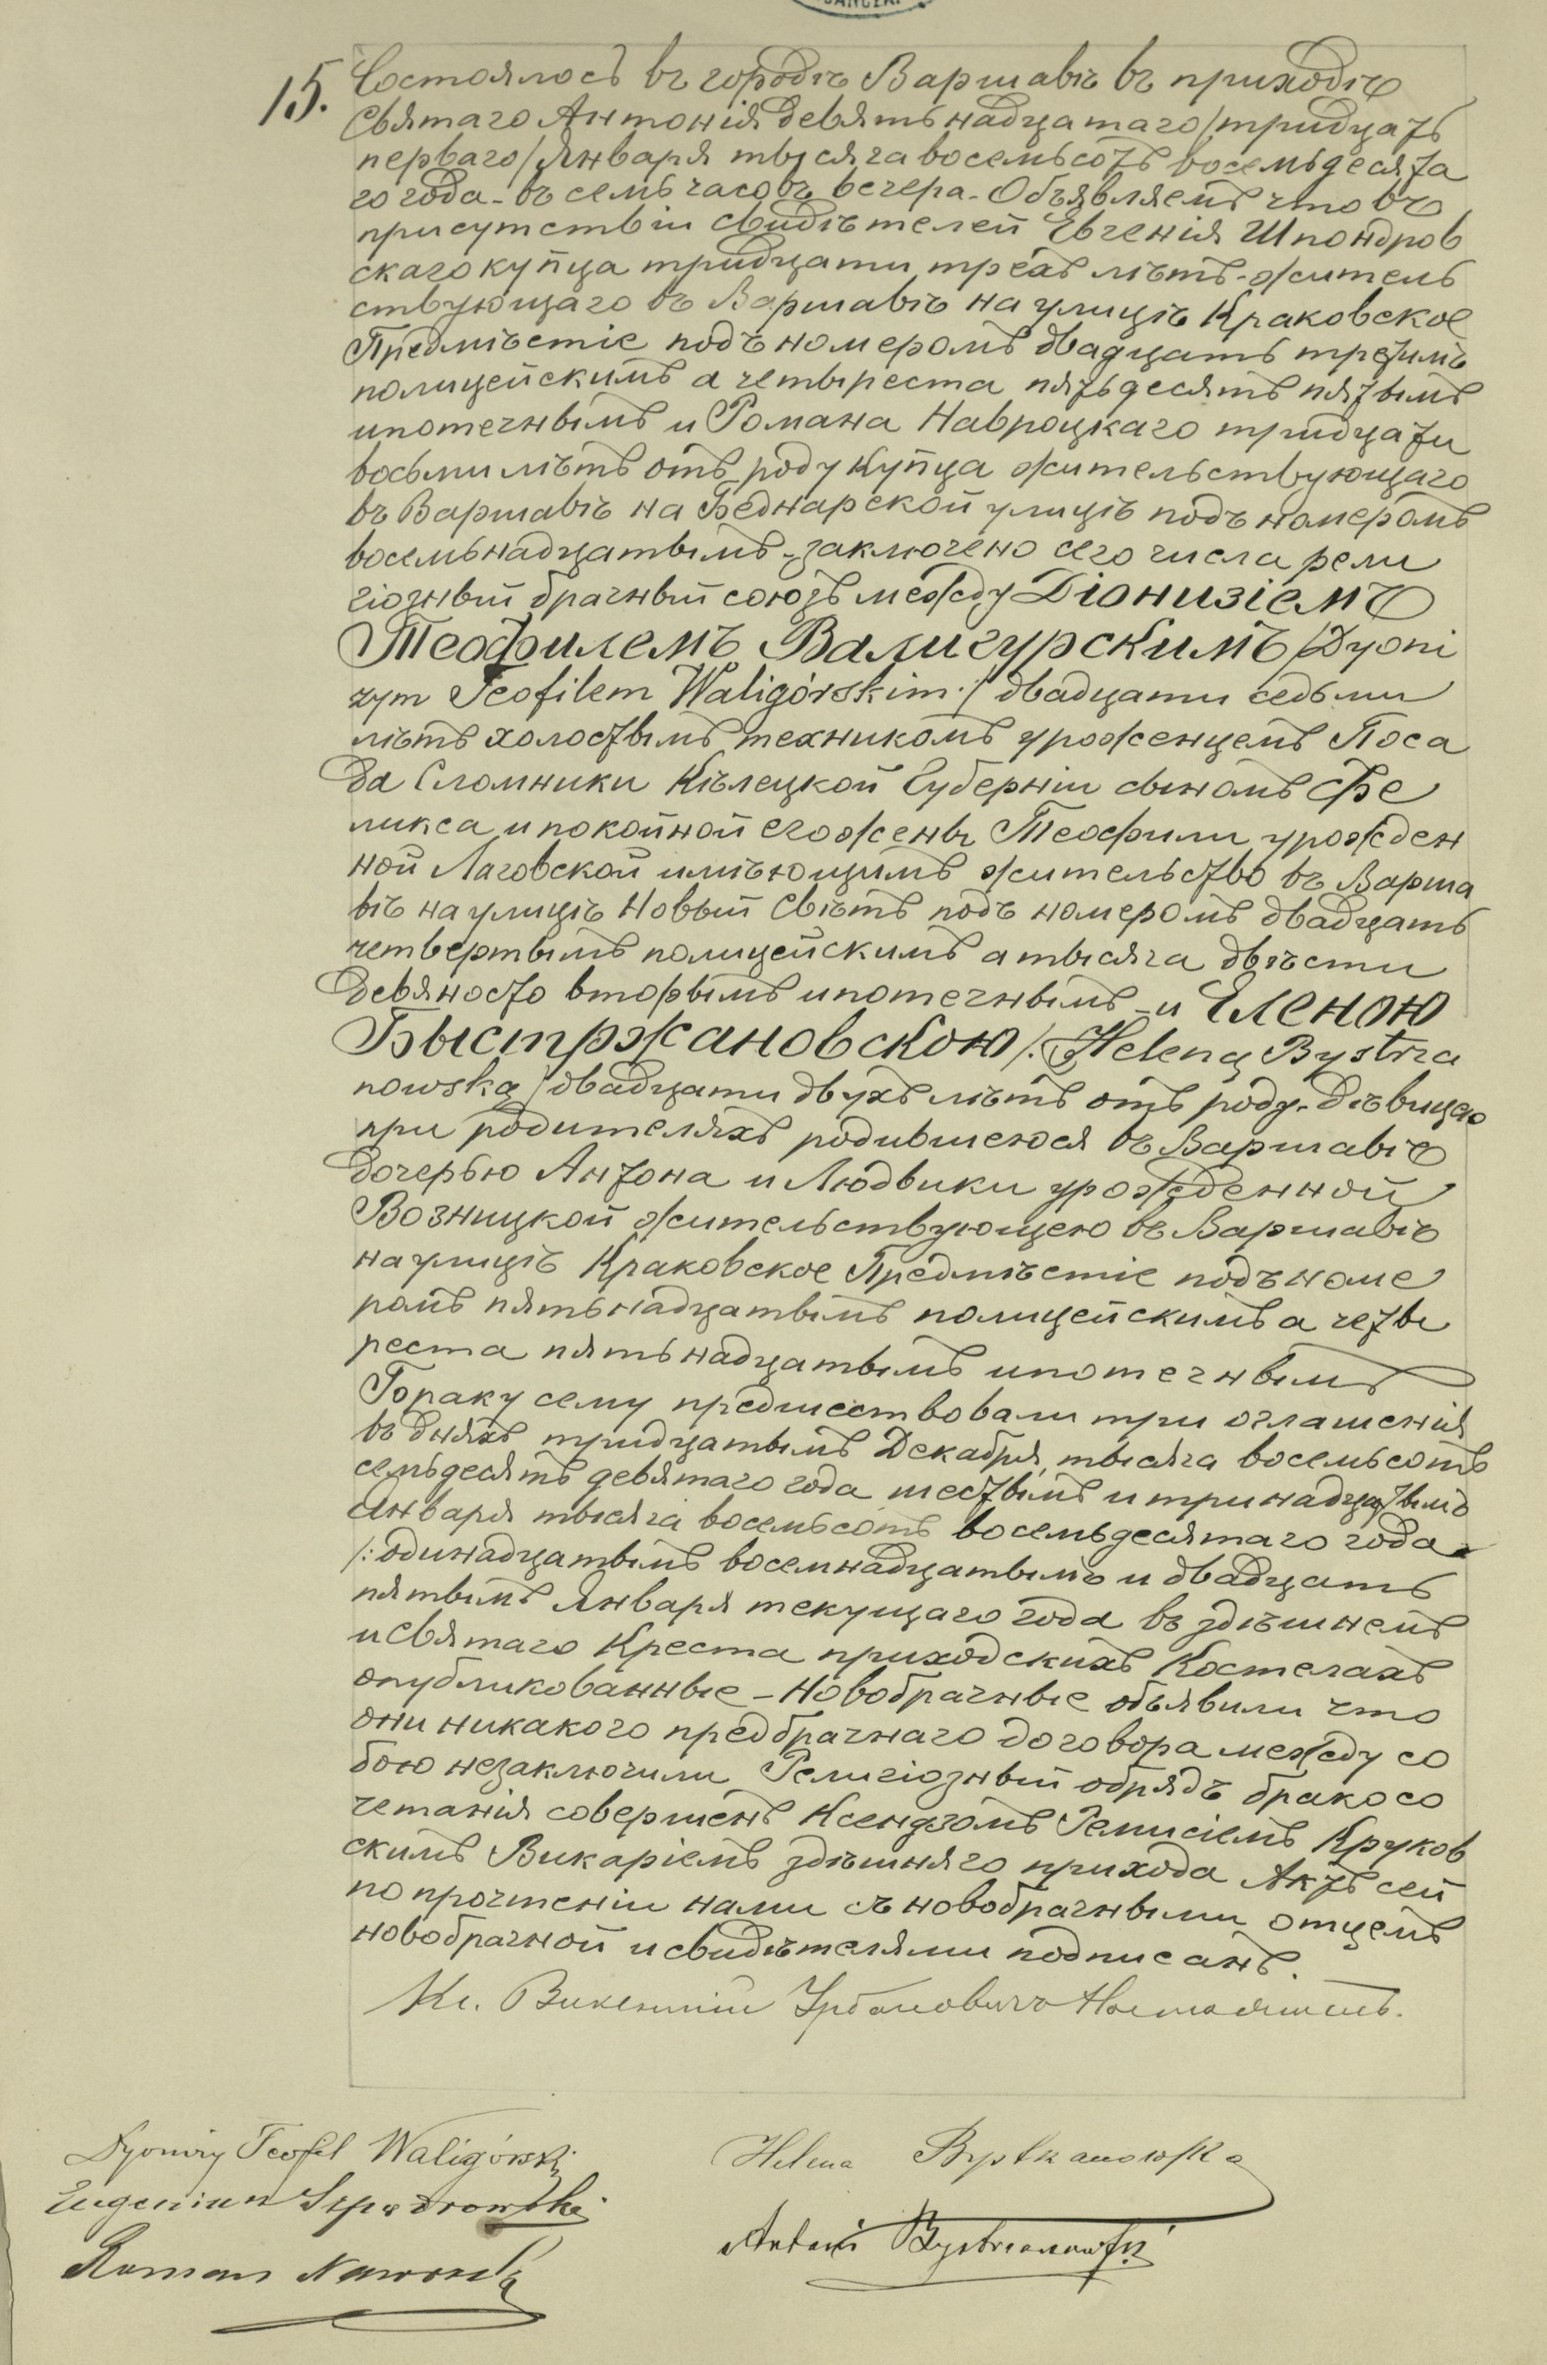 15. Состоялось въ городѣ Варшавѣ въ приходѣ
Святаго Антонія девятьнадцатаго /тридцать
перваго/ Января тысяча восемьсотъ восемьдесята
го года - въ семь часовъ вечера - Объявляемъ что въ
присутствіи свидѣтелей Евгенія Шпондров
скаго купца тридцати трехъ лѣтъ - житель
ствующаго въ Варшавѣ на улицѣ Краковское
Предмѣстіе подъ номеромъ двадцать третимъ
полицейскимъ а четыреста пятьдесятъ пятымъ
ипотечнымъ и Романа Навроцкаго тридцати
восьми лѣтъ отъ роду купца жительствующаго
въ Варшавѣ на Беднарской улицѣ подъ номеромъ
восемьнадцатымъ - заключено сего числа рели
гіозный брачный союзъ между Діонизіемъ
Теофилемъ Валигурскимъ /Dyoni
zym Teofilem Waligórskim:/ двадцати седьми
лѣтъ холостымъ техникомъ уроженцемъ Поса
да Сломники Кѣлецкой Губерніи сыномъ Фе
ликса и покойной его жены Теофили урожден
ной Лаговской имѣющимъ жительство въ Варша
вѣ на улицѣ Новый Свѣтъ подъ номеромъ двадцать
четвертымъ полицейскимъ а тысяча двѣсти
девяносто вторымъ ипотечнымъ - и Еленою
Быстржановскою /:Heleną Bystrza
nowską/ двадцати двухъ лѣтъ отъ роду - дѣвицею
при родителяхъ родившеюся въ Варшавѣ
дочерью Антона и Людвики урожденной
Возницкой жительствующею въ Варшавѣ
на улицѣ Краковское Предмѣстіе подъ номе
ромъ пятьнадцатымъ полицейскимъ а четы
реста пятьнадцатымъ ипотечнымъ
Браку сему предшествовали три оглашенія
въ дняхъ тридцатымъ Декабря тысяча восемьсотъ
семьдесятъ девятаго года шестымъ и тринадцатымъ
Января тысяча восемьсотъ восемьдесятаго года
/:одинадцатымъ восемнадцатымъ и двадцать
пятымъ Января текущаго года въ здѣшнемъ
и Святаго Креста приходскихъ Костелахъ
опубликованные - Новобрачные объявили что
они никакого предбрачнаго договора между со
бою незаключили Религіозный обрядъ бракосо
четанія совершенъ Ксендзомъ Ремисіемъ Круков
скимъ Викаріемъ здѣшняго прихода Актъ сей
по прочтеніи нами съ новобрачными отцемъ
новобрачной и свидѣтелями подписанъ.
Кс. Викентій Урбановичъ Настоятель.
Dyonizy Teofil Waligórski
Helena Bystrzanowska
Eugeniusz Szpondrowski
Antoni Bystrzanowski
Roman Nawrocki